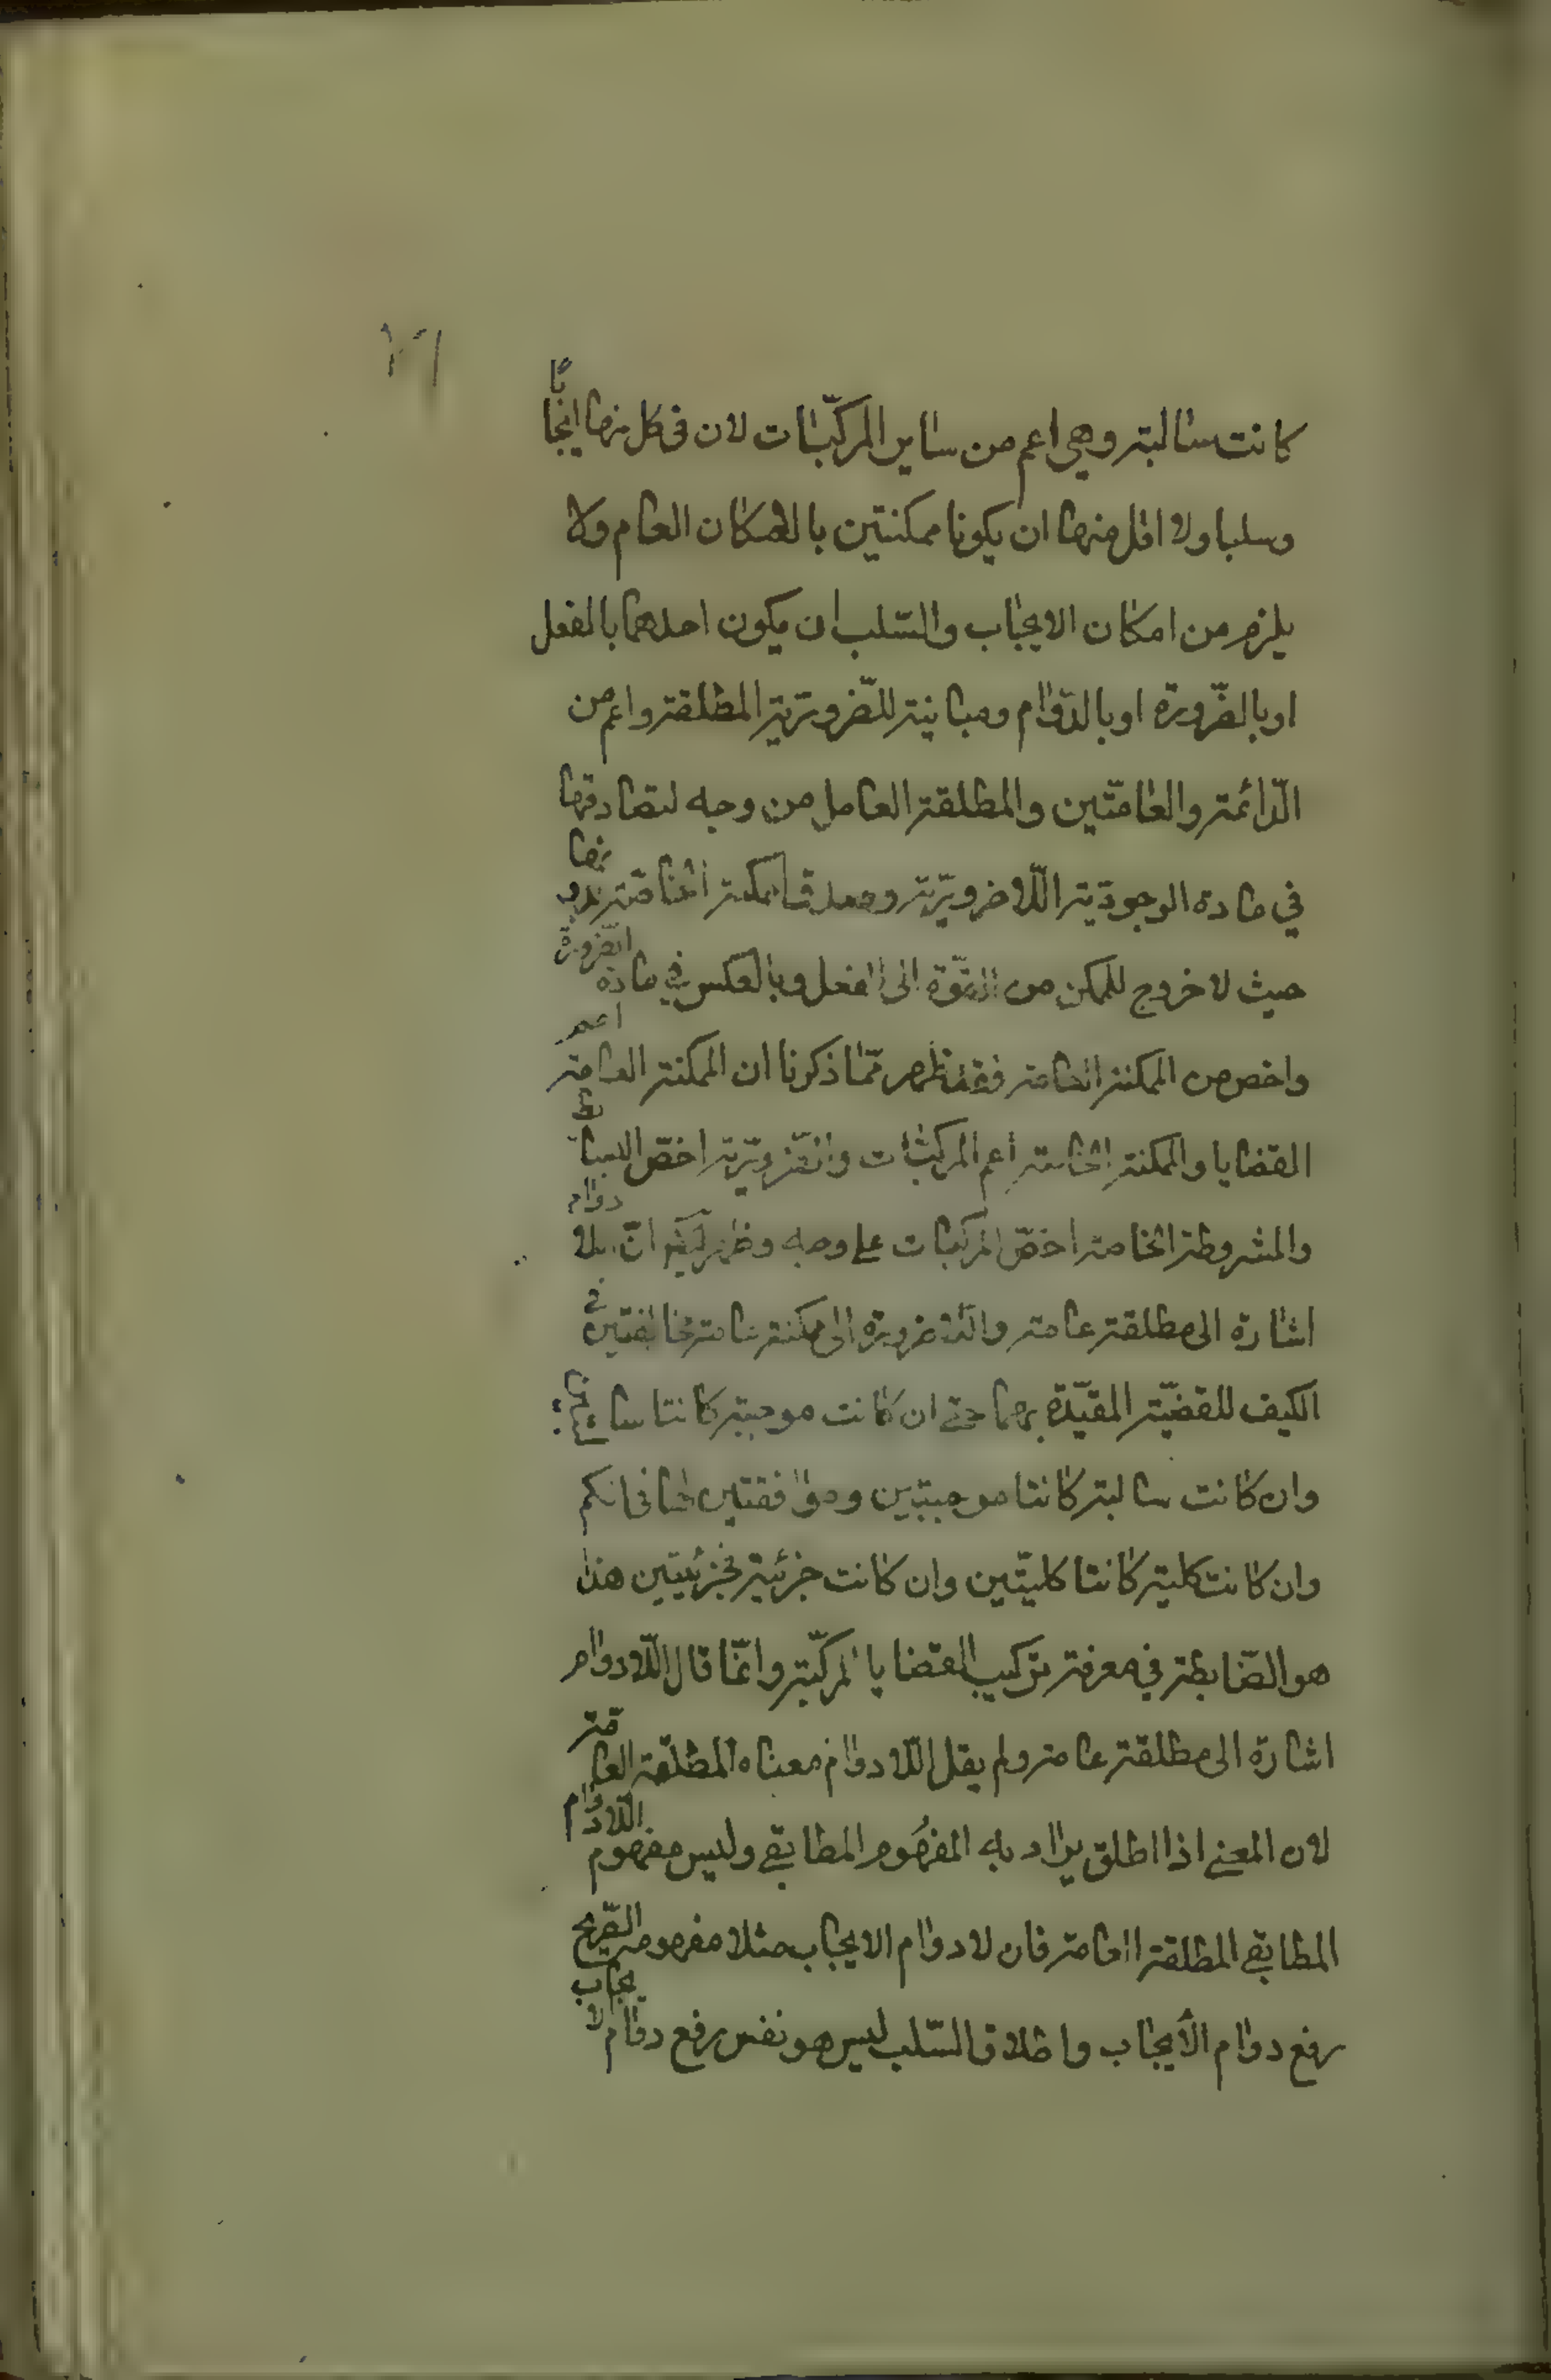 كانت سالبة وهي اعم من ساير المركّبات لان في كل منها ايجابًا
وسلبا ولا اقل منها ان يكونا ممكنتين بالامكان العام ولا
يلزم من امكان الايجاب والسّلب ان يكون احدهما بالفعل
او بالضّرورة او بالدّوام ومباينة للضّروريّة المطلقة واعم من
الدّائمة والعامّتين والمطلقة العامه من وجه لتصادقها
في مادة الوجوديّة اللّاضروريّة وصدق الممكنة الخاصّة بدونها
حيث لا خروج للممكن من القوّة الى الفعل وبالعكس في مادة الضّرورة
واخص من الممكنة العامة فقد ظهر ممّا ذكرنا ان الممكنة العامة اعم
القضايا والممكنة الخاصة اعم المركّبات والضّروريّة اخصّ البسائط
والمشروطة الخاصة اخصّ المركبات على وجه وظهر انّ اللادوام
اشارة الى مطلقة عامة واللّاضرورة الى ممكنة عامة مخالفتين في
الكيف للقضيّة المقيّدة بهما حتى ان كانت موجبة كانتا سالبتين
وان كانت سالبة كانتا موجبتين وموافقتين لها في الكم
وان كانت كلية كانتا كليّتين وان كانت جزئية فجزئيتين هذا
هو الضّابطة في معرفة تركيب القضايا المركّبة وانّما قال اللّادوام
اشارة الى مطلقة عامة ولم يقل اللّادوام معناه المطلقة العامّة
لان المعنى اذا اطلق يراد به المفهُوم المطابقي وليس مفهوم اللّادوام
المطابقي المطلقة العامة فان لادوام الايجاب مثلا مفهومه الصّريح
رفع دوام الأيجاب واطلاق السّلب ليس هو نفس رفع دوام الايجاب